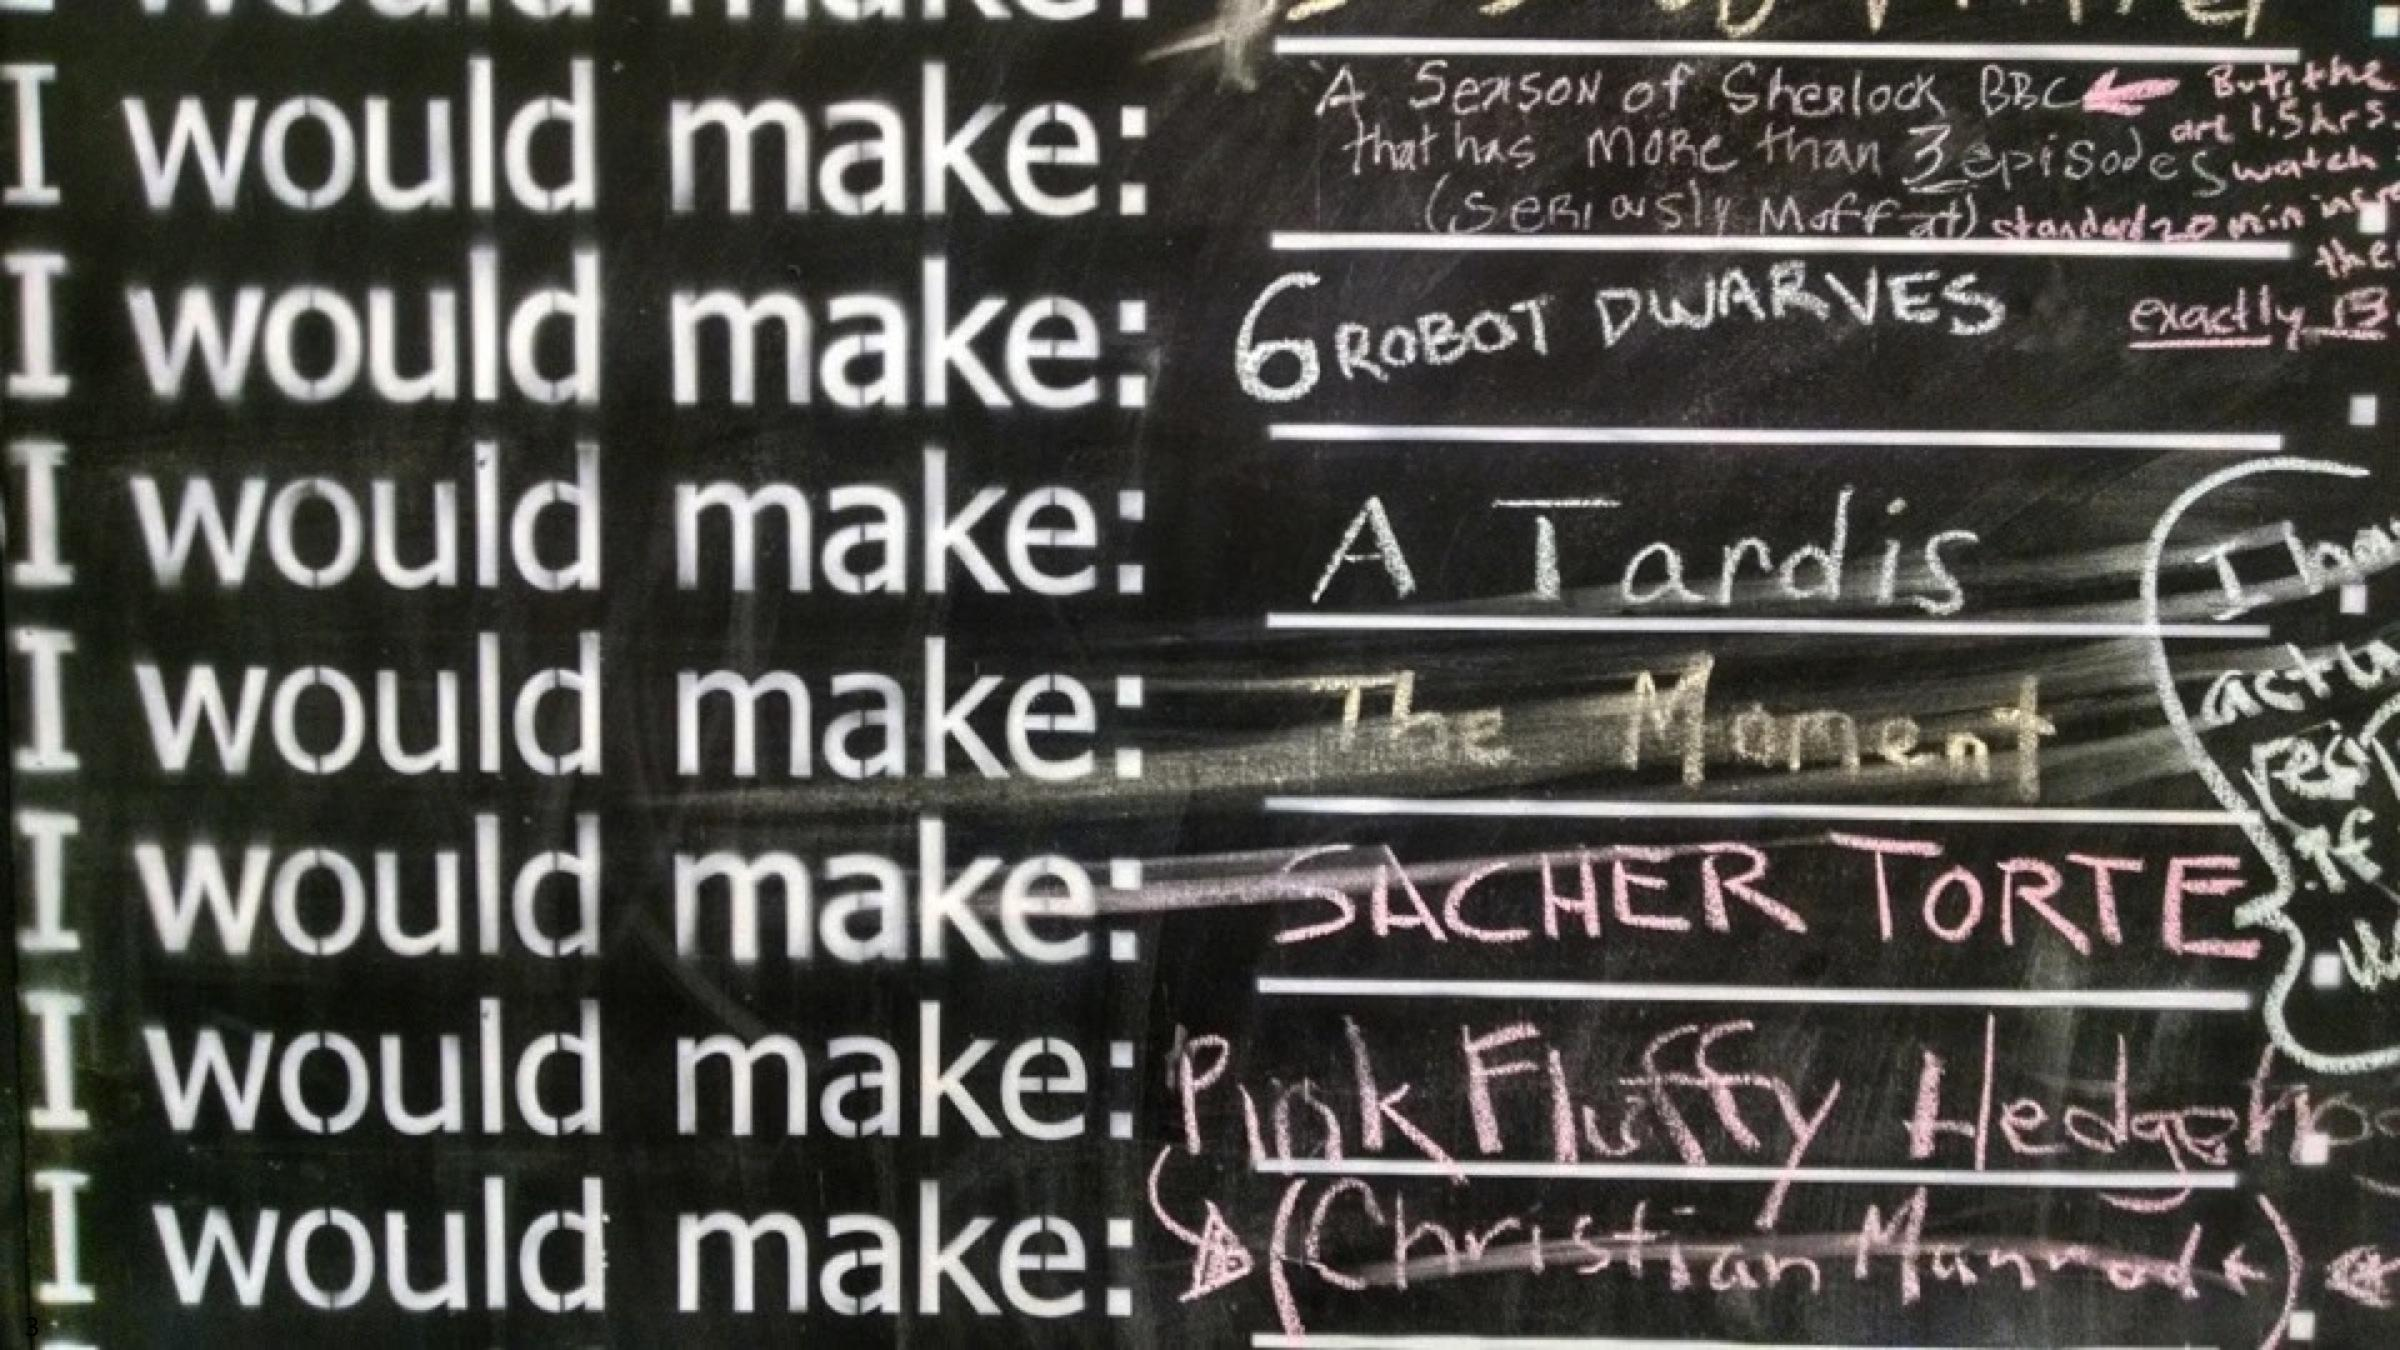 I would make:
I would make: A Season of Sherlock BBC
that has more than 3 episodes
(Seriously Moffat)
But, the
are 1.5 hrs.
watch
standard 20 min
exactly 13
I would make: 6 ROBOT DWARVES
I would make: A Tardis
I would make: The Moment
I would make: SACHER TORTE
I would make: Pink Fluffy Hedgehog
I would make: (Christian Mannodt)
I
if
3